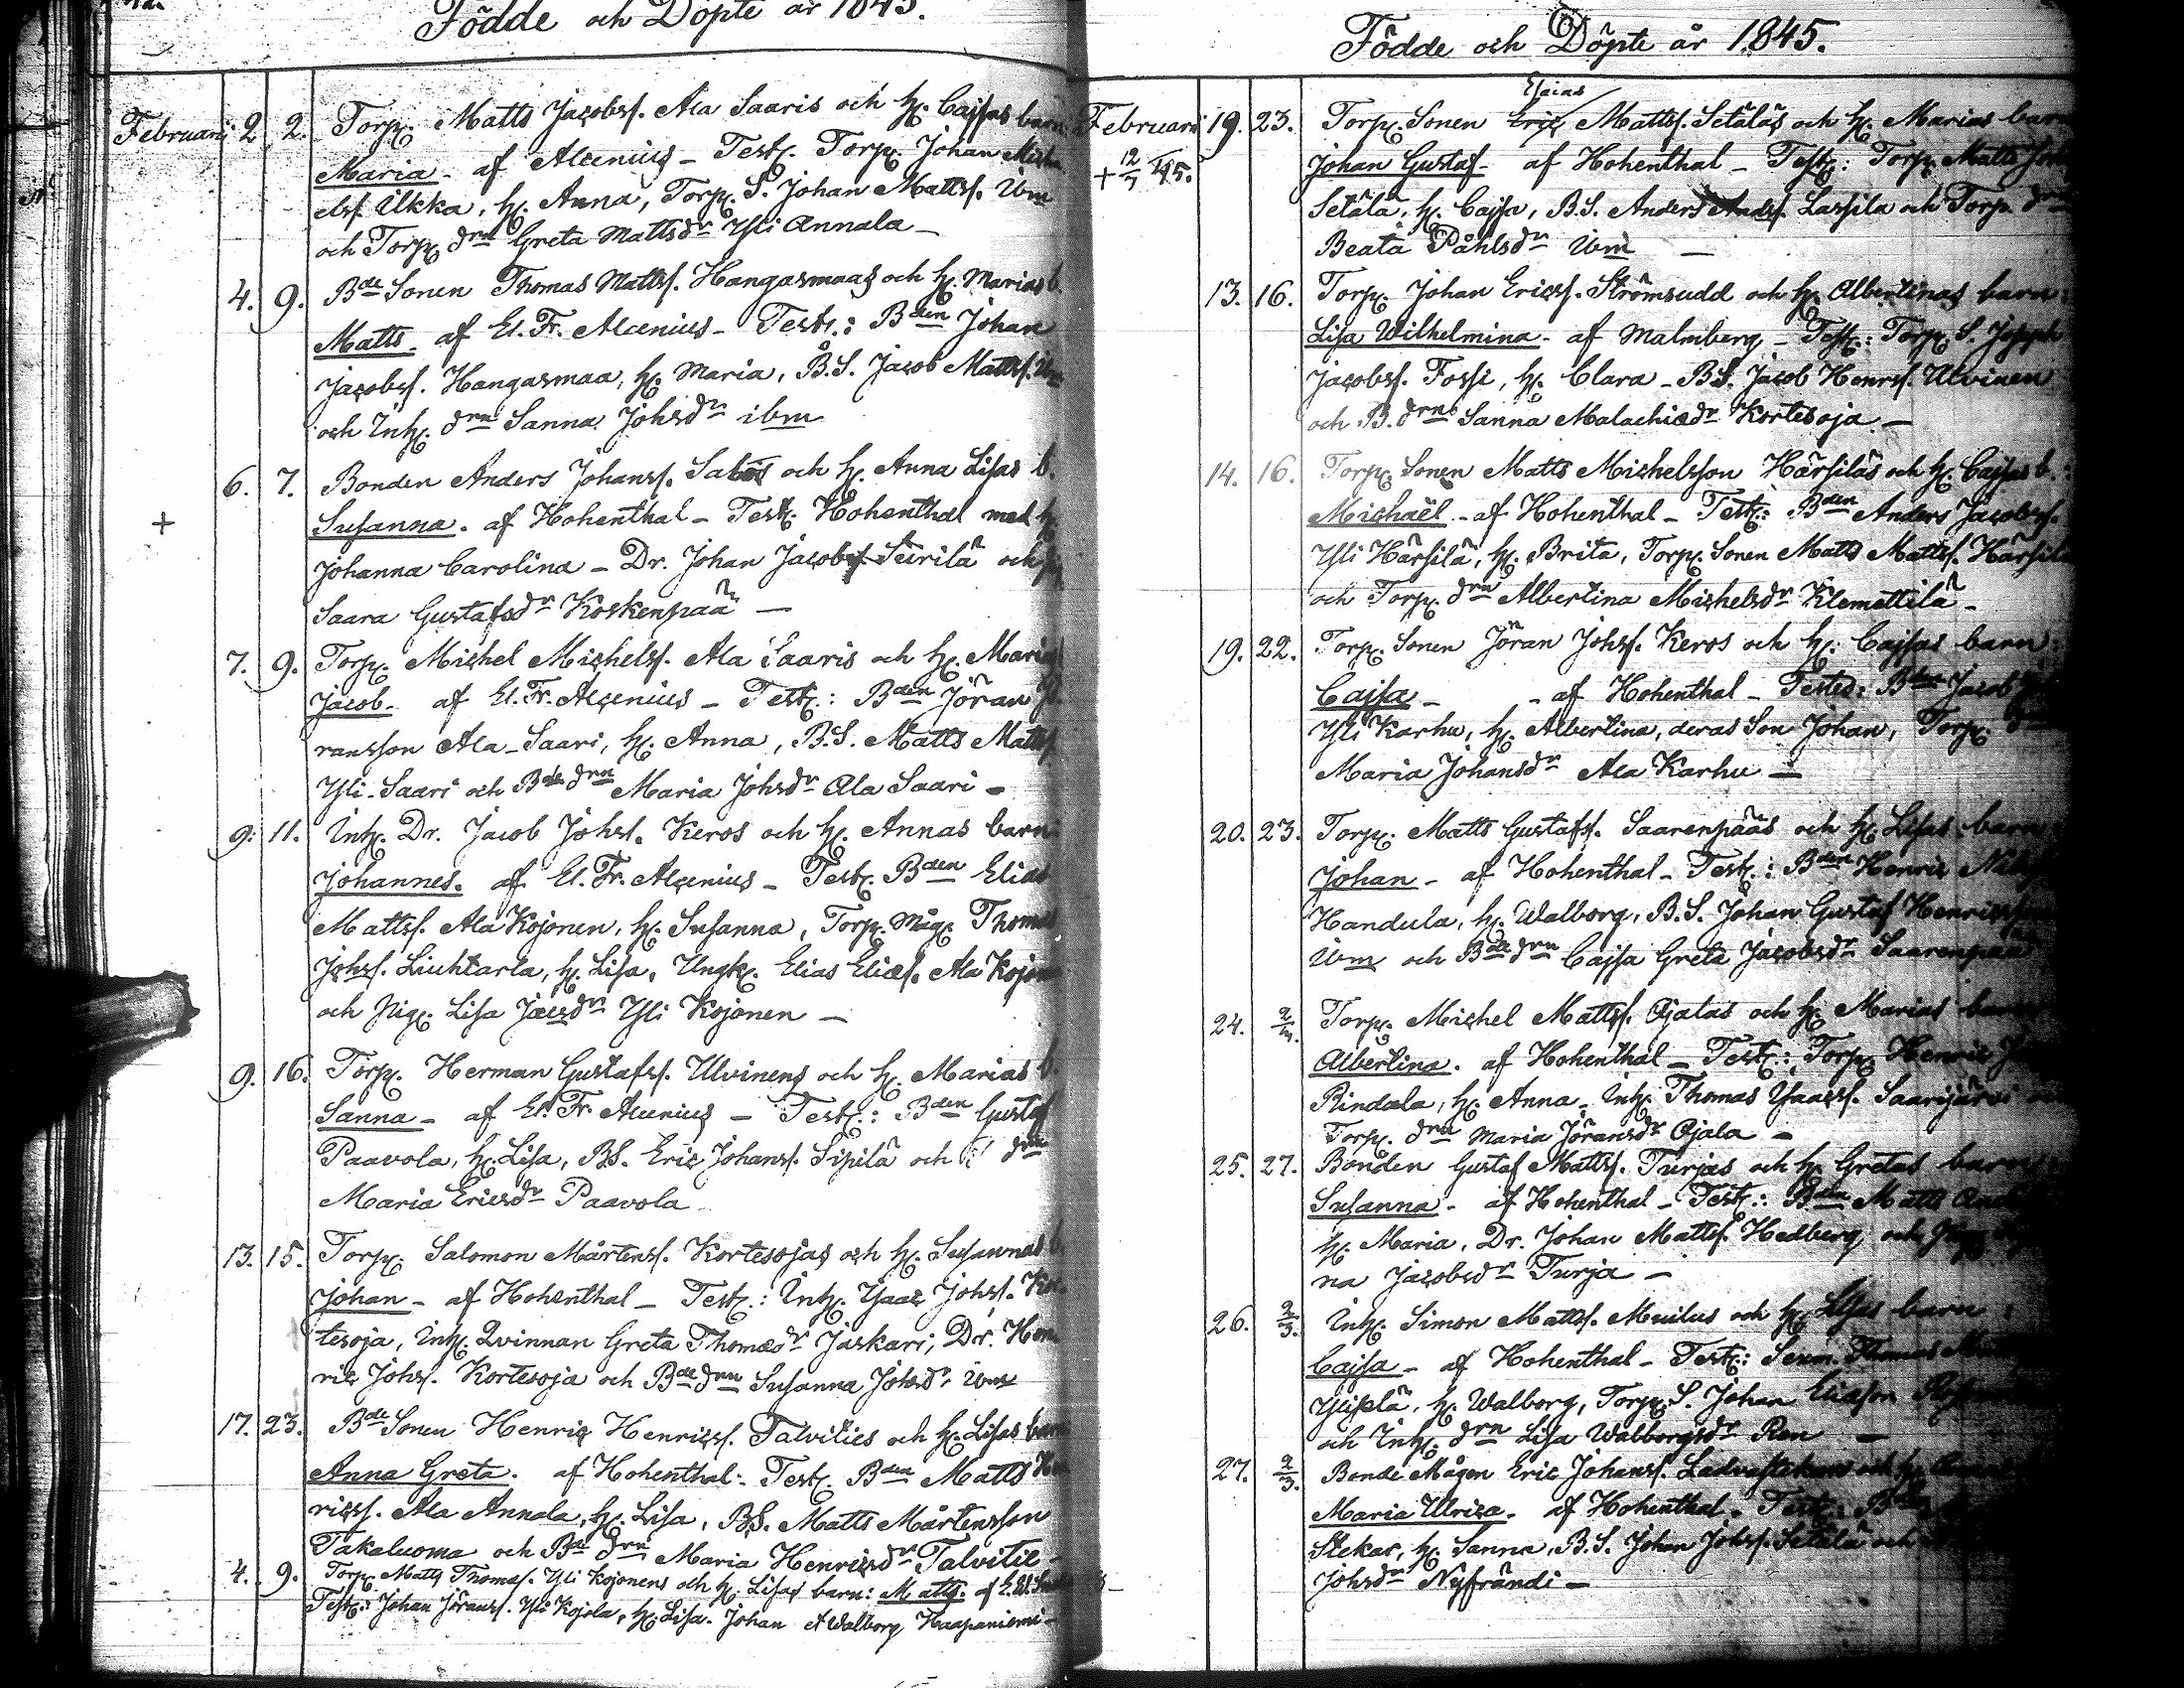 Födde och Döpte år 1845.
Februari 2 2. Torp. Matts Jacobss. Ala Saaris och H. Cajsas barn
Maria - af Alcenius - Test. Torp. Johan Mich
elss. Ukka, H. Anna, Torp. S. Johan Mattss. ibm
och Torp. drn Greta Mattsdr Yli Annala -
4. 9. Bde Sonen Thomas Mattss. Hangasmaas och H. Marias b.
Matts - af El. Fr. Alcenius - Test.: Bden Johan
Jacobss. Hangasmaa, H. Maria, B.S. Jacob Mattss. ibm
och Inh. drn Sanna Johsdr ibm
6. 7. Bonden Anders Johanss. och H. Anna Lisas b.
+ Susanna. af Hohenthal - Test. Hohenthal med H.
Johanna Carolina - Dr. Johan Jacobss. Seirilä och
Saara Gustafsdr Koskenpää -
7. 9. Torp. Michel Michelss. Ala Saaris och H. Marias
Jacob - af El. Fr. Alcenius - Test.: Bden Jöran Jö
ransson Ala-Saari, H. Anna, B.S. Matts Mattss.
Yli-Saari och Bde drn Maria Johsdr Ala Saari -
9. 11. Inh. Dr. Jacob Johss. Keros och H. Annas barn
Johannes. af El. Fr. Alcenius - Test. Bden Elias
Mattss. Ala Kojonen, H. Susanna, Torp. Måg. Thomas
Johss. Liuhtarla, H. Lisa, Ungk. Elias Eliæs. Ala Kojonen
och Pig. Lisa Jacsdr Yli Kojonen -
9. 16. Torp. Herman Gustafss. Ulvinens och H. Marias b.
Sanna - af El. Fr. Alcenius - Test.: Bden Gustaf
Paavola, H. Lisa, BS. Eric Johanss. Sipilä och drn
Maria Ericsdr Paavola
13. 15. Torp. Salomon Mårtenss. Kortesojas och H. Susannas b.
Johan - af Hohenthal - Test.: Inh. Isaac Johss. Kor
tesoja, Inh. Qvinnan Greta Thomædr Jaskari, Dr. Hen
ric Johss. Kortesoja och Bde drn Susanna Johsdr ibm
17. 23. Bde Sonen Henric Henricss. Talvities och H. Lisas barn
Anna Greta. af Hohenthal - Test. Bden Matts Hen
ricss. Ala Annala, H. Lisa, BS. Matts Mårtensson
Takaluoma och Bde drn Maria Henricsdr Talvitie -
4. 9. Torp. Matts Thomas. Yli Kojonens och H. Lisas barn: Matts. af
Test.: Johan Jöranss. Yli Kojola, H. Lisa. Johan & Walborg Haapaniemi -
Födde och Döpte år 1845.
Esaias
Februari 19. 23. Torp. Sonen Eric Mattss. Setäläs och H. Marias barn
+ 12/7 45. Johan Gustaf - af Hohenthal - Test.: Torp. Matts
Setälä, H. Cajsa, B.S. Anders Andss. Lassila och Torp. drn
Beata Påhlsdr ibm -
13. 16. Torp. Johan Ericss. Strömsudd och H. Albertinas barn:
Lisa Wilhelmina - af Malmberg - Test.: Torp. S. Joseph
Jacobss. Fossi, H. Clara - BS. Jacob Henrss. Ulvinen
och B. drn Sanna Malachiædr Kortesoja -
14. 16. Torp. Sonen Matts Michelsson Härsiläs och H. Cajsas b.:
Michaël - af Hohenthal - Test.: Bden Anders Jacobss.
Yli Härsilä, H. Brita, Torp. Sonen Matts Mattss. Härsilä
och Torp. drn Albertina Michelsdr Klemettilä -
19. 22. Torp. Sonen Jöran Johss. Keros och H. Cajsas barn:
Cajsa - - af Hohenthal - Testes: Bden Jacob
Yli Karhu, H. Albertina, deras Son Johan, Torp. drn
Maria Johansdr Ala Karhu -
20. 23. Torp. Matts Gustafss. Saarenpääs och H. Lisas barn
Johan - af Hohenthal - Test.: Bden Henric
Handula, H. Walborg, B.S. Johan Gustaf Henricss.
ibm och Bde drn Cajsa Greta Jacobsdr Saarenpää
24. 2/3. Torp. Michel Mattss. Ojalas och H. Marias barn
Albertina. af Hohenthal - Test.: Torp. Henric
Rindala, H. Anna - Inh. Thomas Isaacss. Saarijärvi
Torp. drn Maria Jöransdr Ojala -
25. 27. Bonden Gustaf Mattss. Turjas och H. Gretas barn
Susanna - af Hohenthal - Test.: Bden Matts
H. Maria, Dr. Johan Mattss. Hedberg och
na Jacobsdr Turja -
26. 2/3. Inh. Simon Mattss. Muilus och H. Lisas barn:
Cajsa - af Hohenthal - Test.: Sexm. Thomas
H. Walborg, Torp. S. Johan Eliasson
och Inh. drn Lisa Walborgsdr Ren -
27. 2/3. Bonde Mågen Eric Johanss. och H.
Maria Ulrica - af Hohenthal. Test.: Bden
Stekar, H. Sanna, B.S. Johan Johss. Setälä och
Johsdr Nyfrändi -